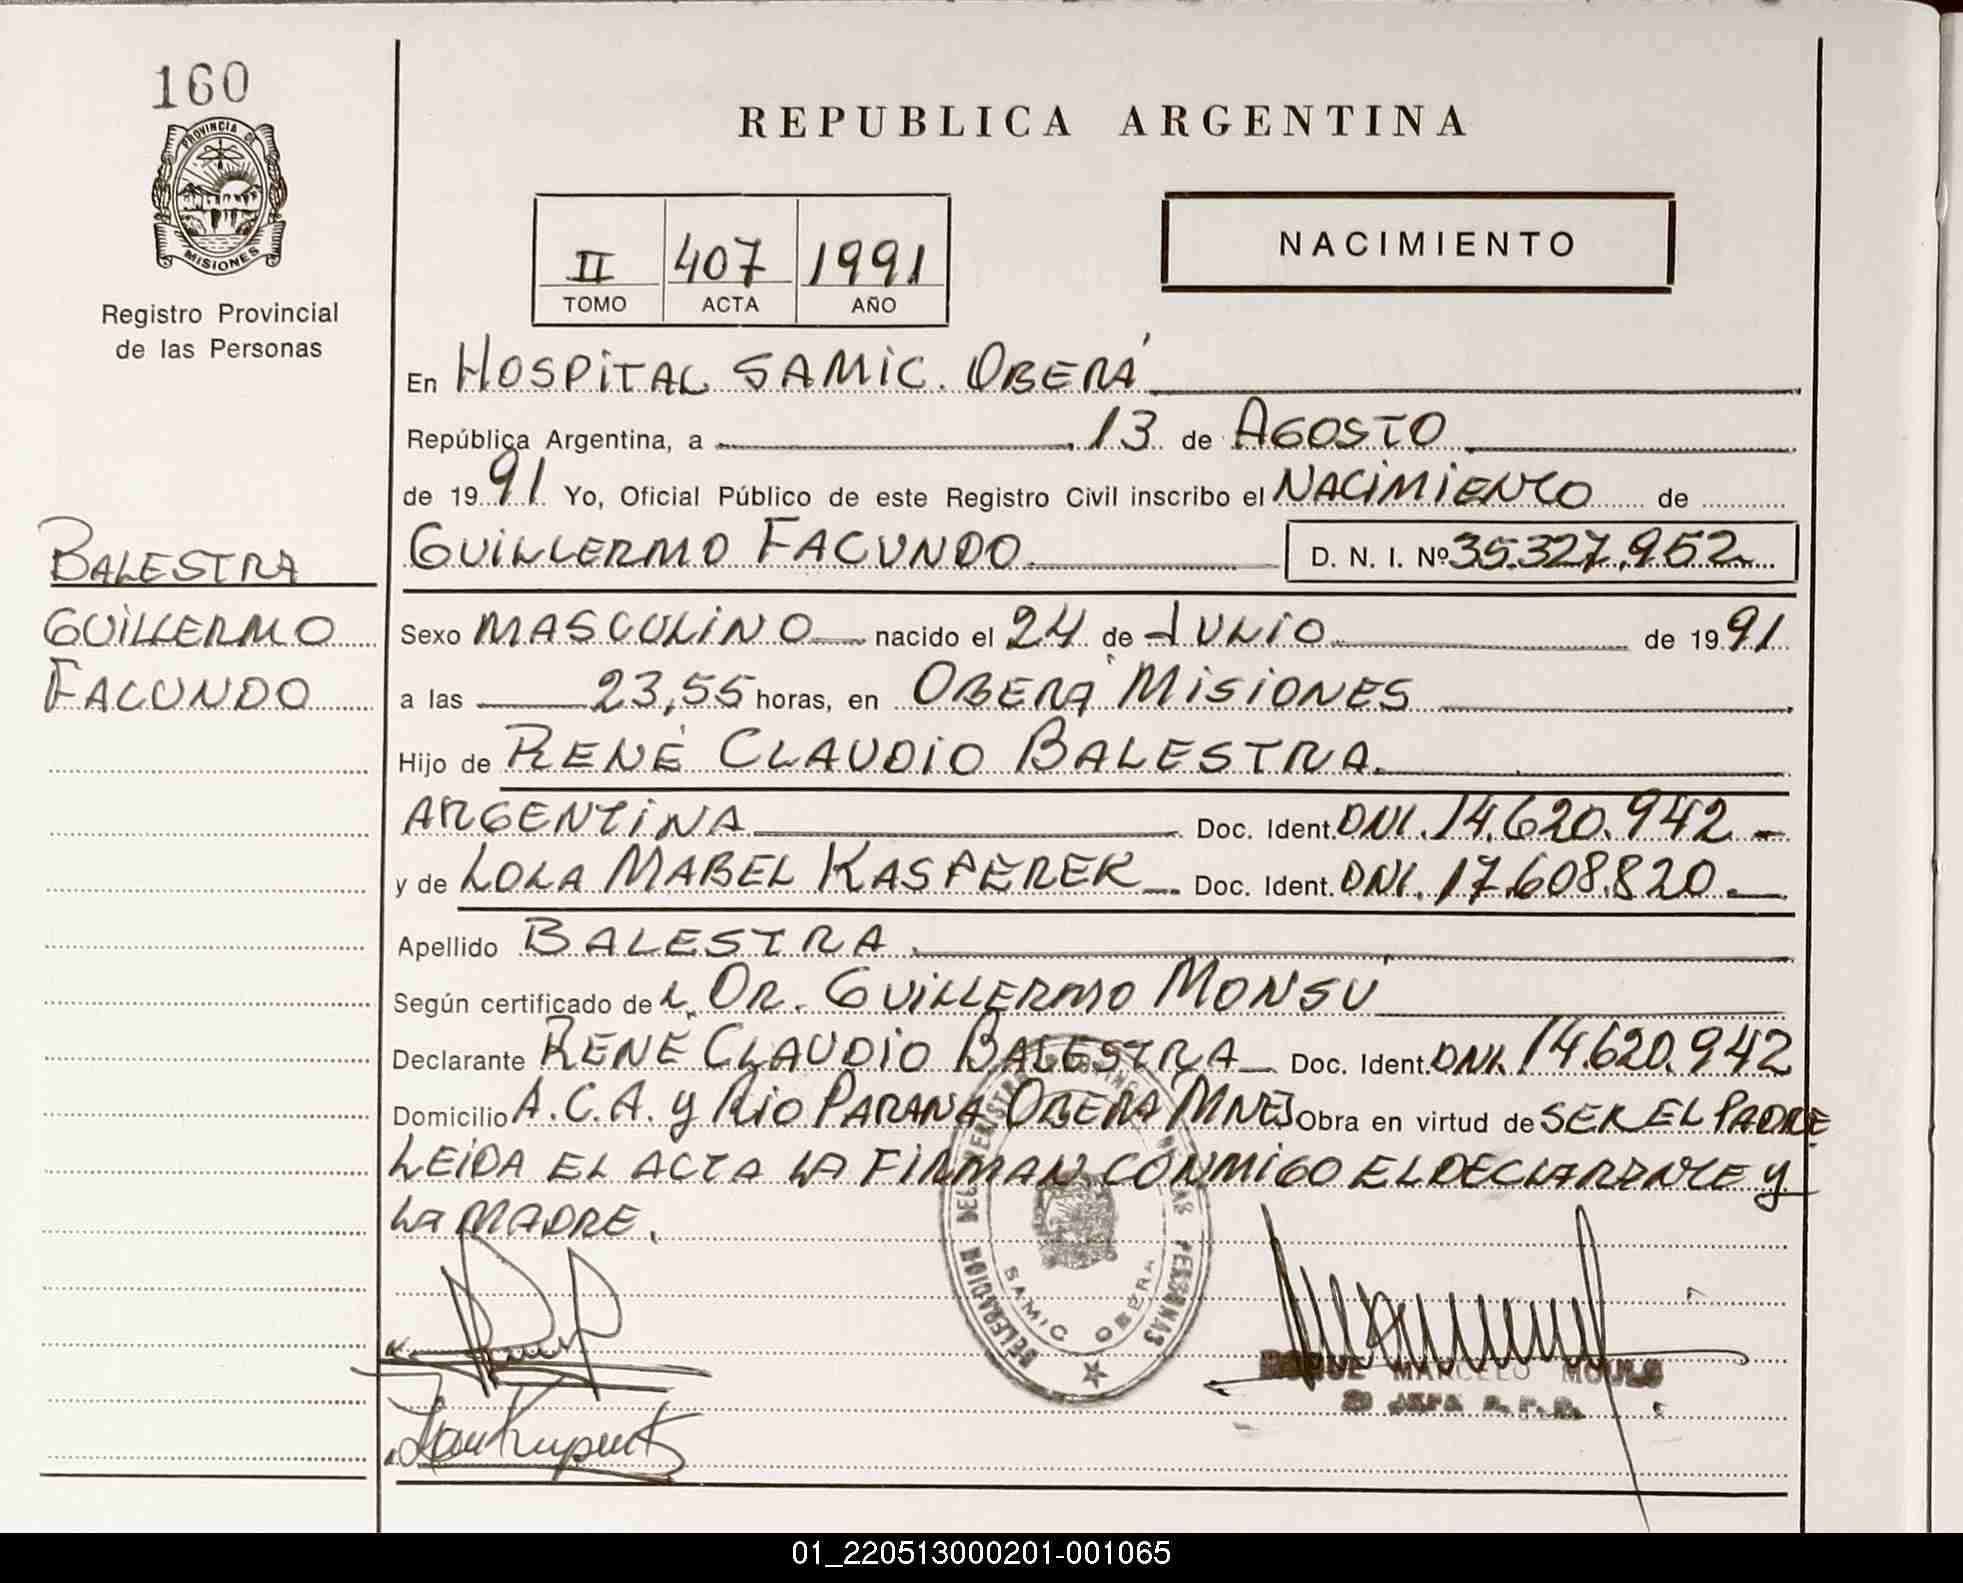 160
PROVINCIA DE
MISIONES
Registro Provincial
de las Personas
BALESTRA
GUILLERMO
FACUNDO
REPUBLICA ARGENTINA
II 407 1991
TOMO ACTA AÑO
NACIMIENTO
En HOSPITAL SAMIC. OBERÁ
República Argentina, a 13 de AGOSTO
de 1991 Yo, Oficial Público de este Registro Civil inscribo el NACIMIENTO de
GUILLERMO FACUNDO D. N. I. Nº 35.327.952
Sexo MASCULINO nacido el 24 de JUNIO de 1991
a las 23,55 horas, en OBERÁ MISIONES
Hijo de RENÉ CLAUDIO BALESTRA
ARGENTINA Doc. Ident. DNI. 14.620.942
y de LOLA MABEL KASPEREK Doc. Ident. DNI. 17.608.820
Apellido BALESTRA
Según certificado del DR. GUILLERMO MONSU
Declarante RENÉ CLAUDIO BALESTRA Doc. Ident. DNI. 14.620.942
Domicilio A.C.A. y RIO PARANA OBERA MNES Obra en virtud de SER EL PADRE
LEIDA EL ACTA LA FIRMAN CONMIGO EL DECLARANTE y
LA MADRE.
DELEGACION DEL REGISTRO PROVINCIAL DE LAS PERSONAS
SAMIC OBERA
MARCELO
01_220513000201-001065